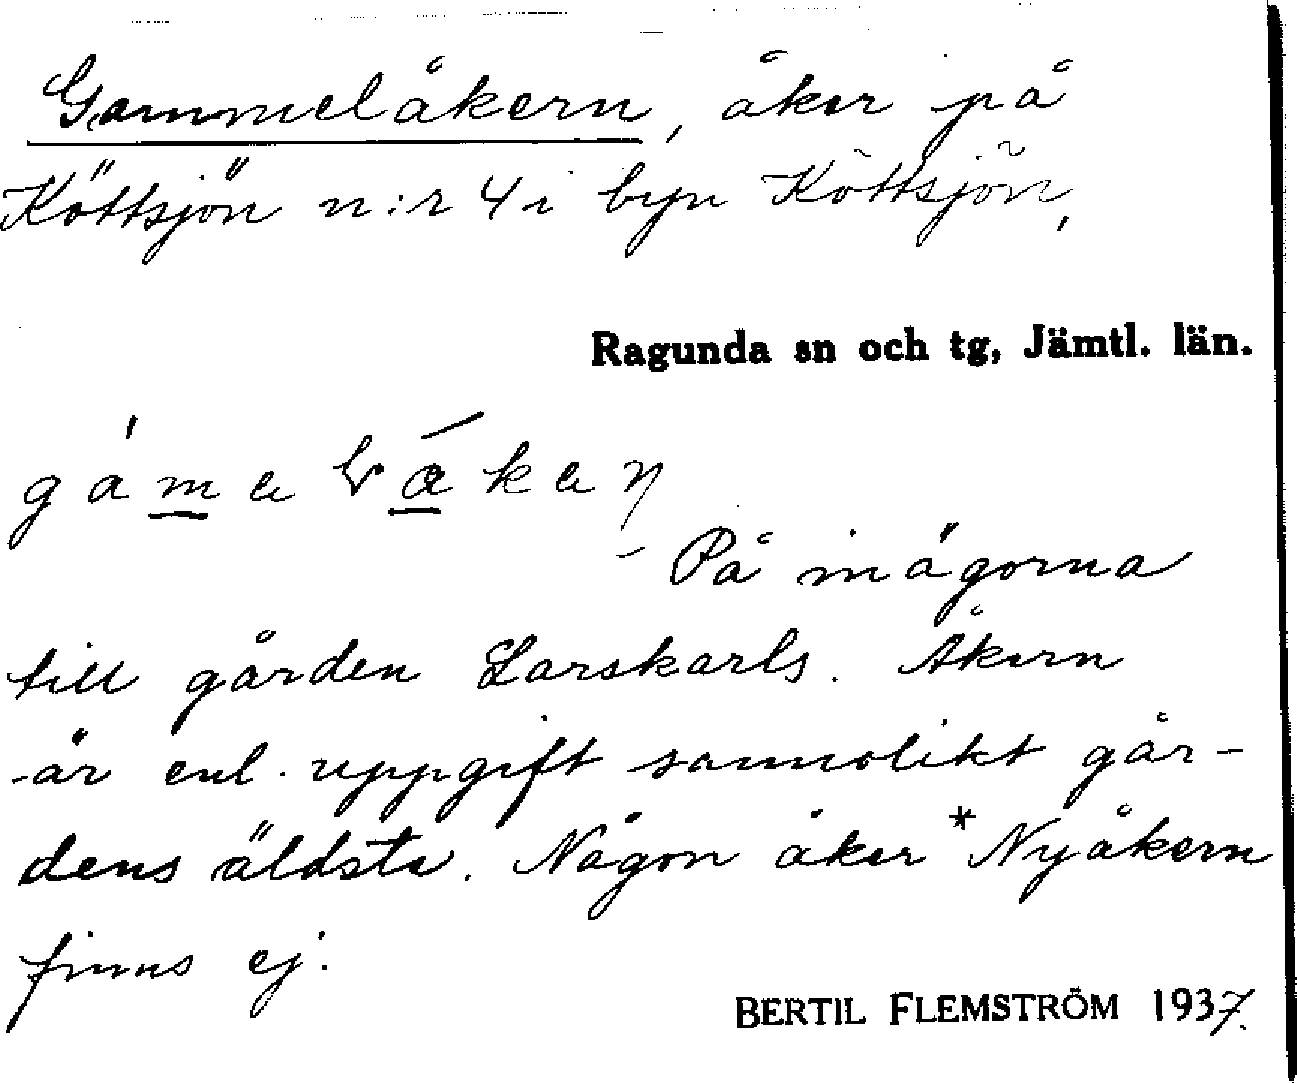 Gammelåkern, åker på
Köttsjön n:r 4 i byn Köttsjön,
Ragunda sn och tg, Jämtl. län.
På inägorna
till gården Larskarls. Åkern
är enl. uppgift sannolikt går-
dens äldsta. Någon åker *Nyåkern
finns ej.
BERTIL FLEMSTRÖM 1937.